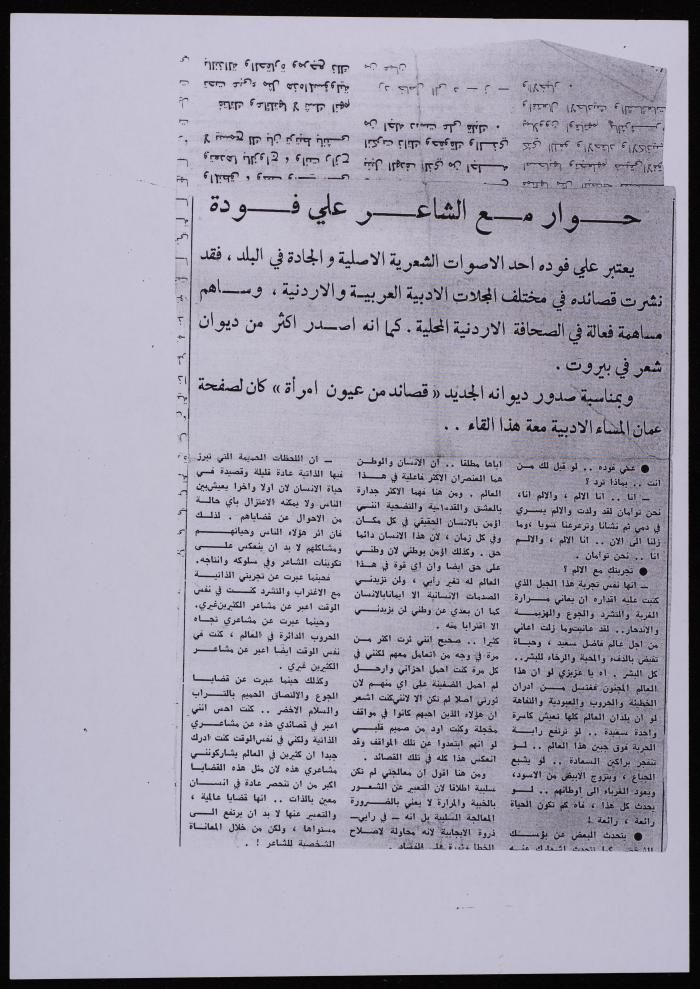 حوار مع الشاعر علي فودة
يعتبر علي فوده احد الاصوات الشعرية الاصلية والجادة في البلد ، فقد
نشرت قصائده في مختلف المجلات الادبية العربية والاردنية ، وساهم
مساهمة فعالة في الصحافة الاردنية المحلية . كما انه اصدر اكثر من ديوان
شعر في بيروت .
وبمناسبة صدور ديوانه الجديد « قصائد من عيون امرأة » كان لصفحة
عمان المساء الادبية معة هذا القاء . .
● علي فوده . . لو قيل لك من
انت . . بماذا ترد ؟
— انا . . انا الالم ، والالم انا،
نحن توأمان لقد ولدت والالم يسري
في دمي ثم نشأنا وترعرعنا سويا ،وما
زلنا الى الان . . انا الالم ، والالم
انا . . نحن توأمان .
● تجربتك مع الالم ؟
— انها نفس تجربة هذا الجيل الذي
كتبت عليه اقداره ان يعاني مرارة
الغربة والتشرد والجوع والهزيمة
والاندحار.. لقد عانيت وما زلت اعاني
من اجل عالم فاضل سعيد ، وحياة
تفيض بالدفء والمحبة والرخاء للبشر..
كل البشر . اه يا عزيزي لو ان هذا
العالم المجنون اغتسل من ادران
الخطيئة والحروب والعبودية والتفاهة
لو ان بلدان العالم كلها تعيش كاسرة
واحدة سعيدة . . لو ترتفع راية
الحرية فوق جبين هذا العالم . . لو
تتفجر براكين السعادة . . لو يشبع
الجياع ، ويتزوج الابيض من الاسود،
ويعود الغرباء الى اوطانهم . . لو
يحدث كل هذا ، فاه كم تكون الحياة
رائعة ، رائعة !
● يتحدث البعض عن بؤسك
اياها مطلقا . . ان الانسان والوطن
هما العنصران الاكثر فاعلية في هذا
العالم . ومن هنا فهما الاكثر جدارة
بالعشق والقدسية والتضحية انني
اؤمن بالانسان الحقيقي في كل مكان
وفي كل زمان ، لان هذا الانسان دائما
حق . وكذلك اؤمن بوطني لان وطني
على حق ايضا وان اي قوة في هذا
العالم له تغير رأيي ، ولن تزيدني
الصدمات الانسانية الا ايمانا بالانسان
كما ان بعدي عن وطني لن يزيدني
الا اقترابا منه .
كثيرا . . صحيح انني ثرت اكثر من
مرة في وجه من اتعامل معهم لكنني في
كل مرة كنت احمل احزاني وارحل
لم احمل الضغينة على اي منهم لان
ثورتي اصلا لم تكن الا لانني كنت اشعر
ان هؤلاء الذين احبهم كانوا في مواقف
مخجلة وكنت اود من صميم قلبي
لو انهم ابتعدوا عن تلك المواقف وقد
انعكس هذا كله في تلك القصائد .
ومن هنا اقول ان معالجتي لم تكن
سلبية اطلاقا لان التعبير عن الشعور
بالخيبة والمرارة لا يعني بالضرورة
المعالجة السلبية بل انه — في رأيي—
ذروة الايجابية لانه محاولة لاصلاح
الخطأ وثورة على الفساد .
— ان اللحظات الحميمة التي تبرز
فيها الذاتية عادة قليلة وقصيدة في
حياة الانسان لان اولا واخرا يعيش بين
الناس ولا يمكنه الاعتزال بأي حالة
من الاحوال عن قضاياهم . لذلك
فان اثر هؤلاء الناس وحياتهم
ومشاكلهم لا بد ان ينعكس على
تكوينات الشاعر وفي سلوكه وانتاجه.
فحينما عبرت عن تجربتي الذاتية
مع الاغتراب والتشرد كنت في نفس
الوقت اعبر عن مشاعر الكثيرين غيري.
وحينما عبرت عن مشاعري تجاه
الحروب الدائرة في العالم ، كنت في
نفس الوقت ايضا اعبر عن مشاعر
الكثيرين غيري .
وكذلك حينما عبرت عن قضايا
الجوع والالتصاق الحميم بالتراب
والسلام الاخضر . . كنت احس انني
اعبر في قصائدي هذه عن مشاعري
الذاتية ولكني في نفس الوقت كنت ادرك
جيدا ان كثيرين في العالم يشاركونني
مشاعري هذه لان مثل هذه القضايا
اكبر من ان تنحصر عادة في انسان
معين بالذات . . انها قضايا عالمية ،
والتعبير عنها لا بد ان يرتفع الى
مستواها ، ولكن من خلال المعاناة
الشخصية للشاعر ! .